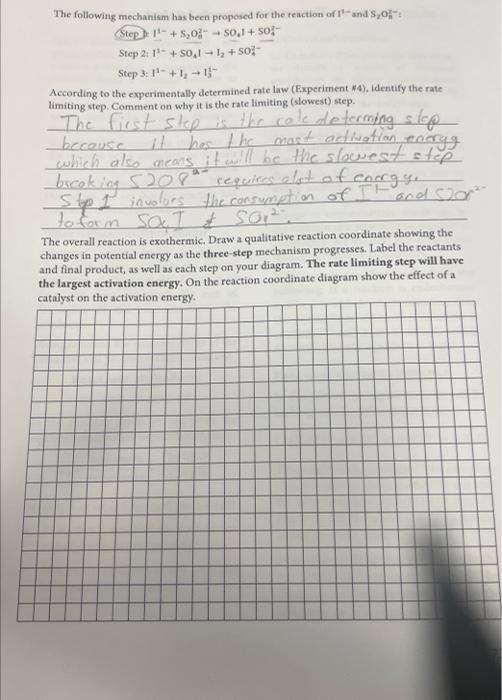 The following mechanism has been proposed for the reaction of I¹⁻ and S₂O₈²⁻:
Step 1: I¹⁻ + S₂O₈²⁻ → SO₄I + SO₄²⁻
Step 2: I¹⁻ + SO₄I → I₂ + SO₄²⁻
Step 3: I¹⁻ + I₂ → I₃¹⁻
According to the experimentally determined rate law (Experiment #4), identify the rate
limiting step. Comment on why it is the rate limiting (slowest) step.
The first step is the rate determing step
because it has the most activation energy
which also means it will be the slowest step
breaking S2O8²⁻ requires alot of energy.
Step 1 involves the consumption of I¹⁻ and S2O8²⁻
to form SO4I & SO4²⁻.
The overall reaction is exothermic. Draw a qualitative reaction coordinate showing the
changes in potential energy as the three-step mechanism progresses. Label the reactants
and final product, as well as each step on your diagram. The rate limiting step will have
the largest activation energy. On the reaction coordinate diagram show the effect of a
catalyst on the activation energy.